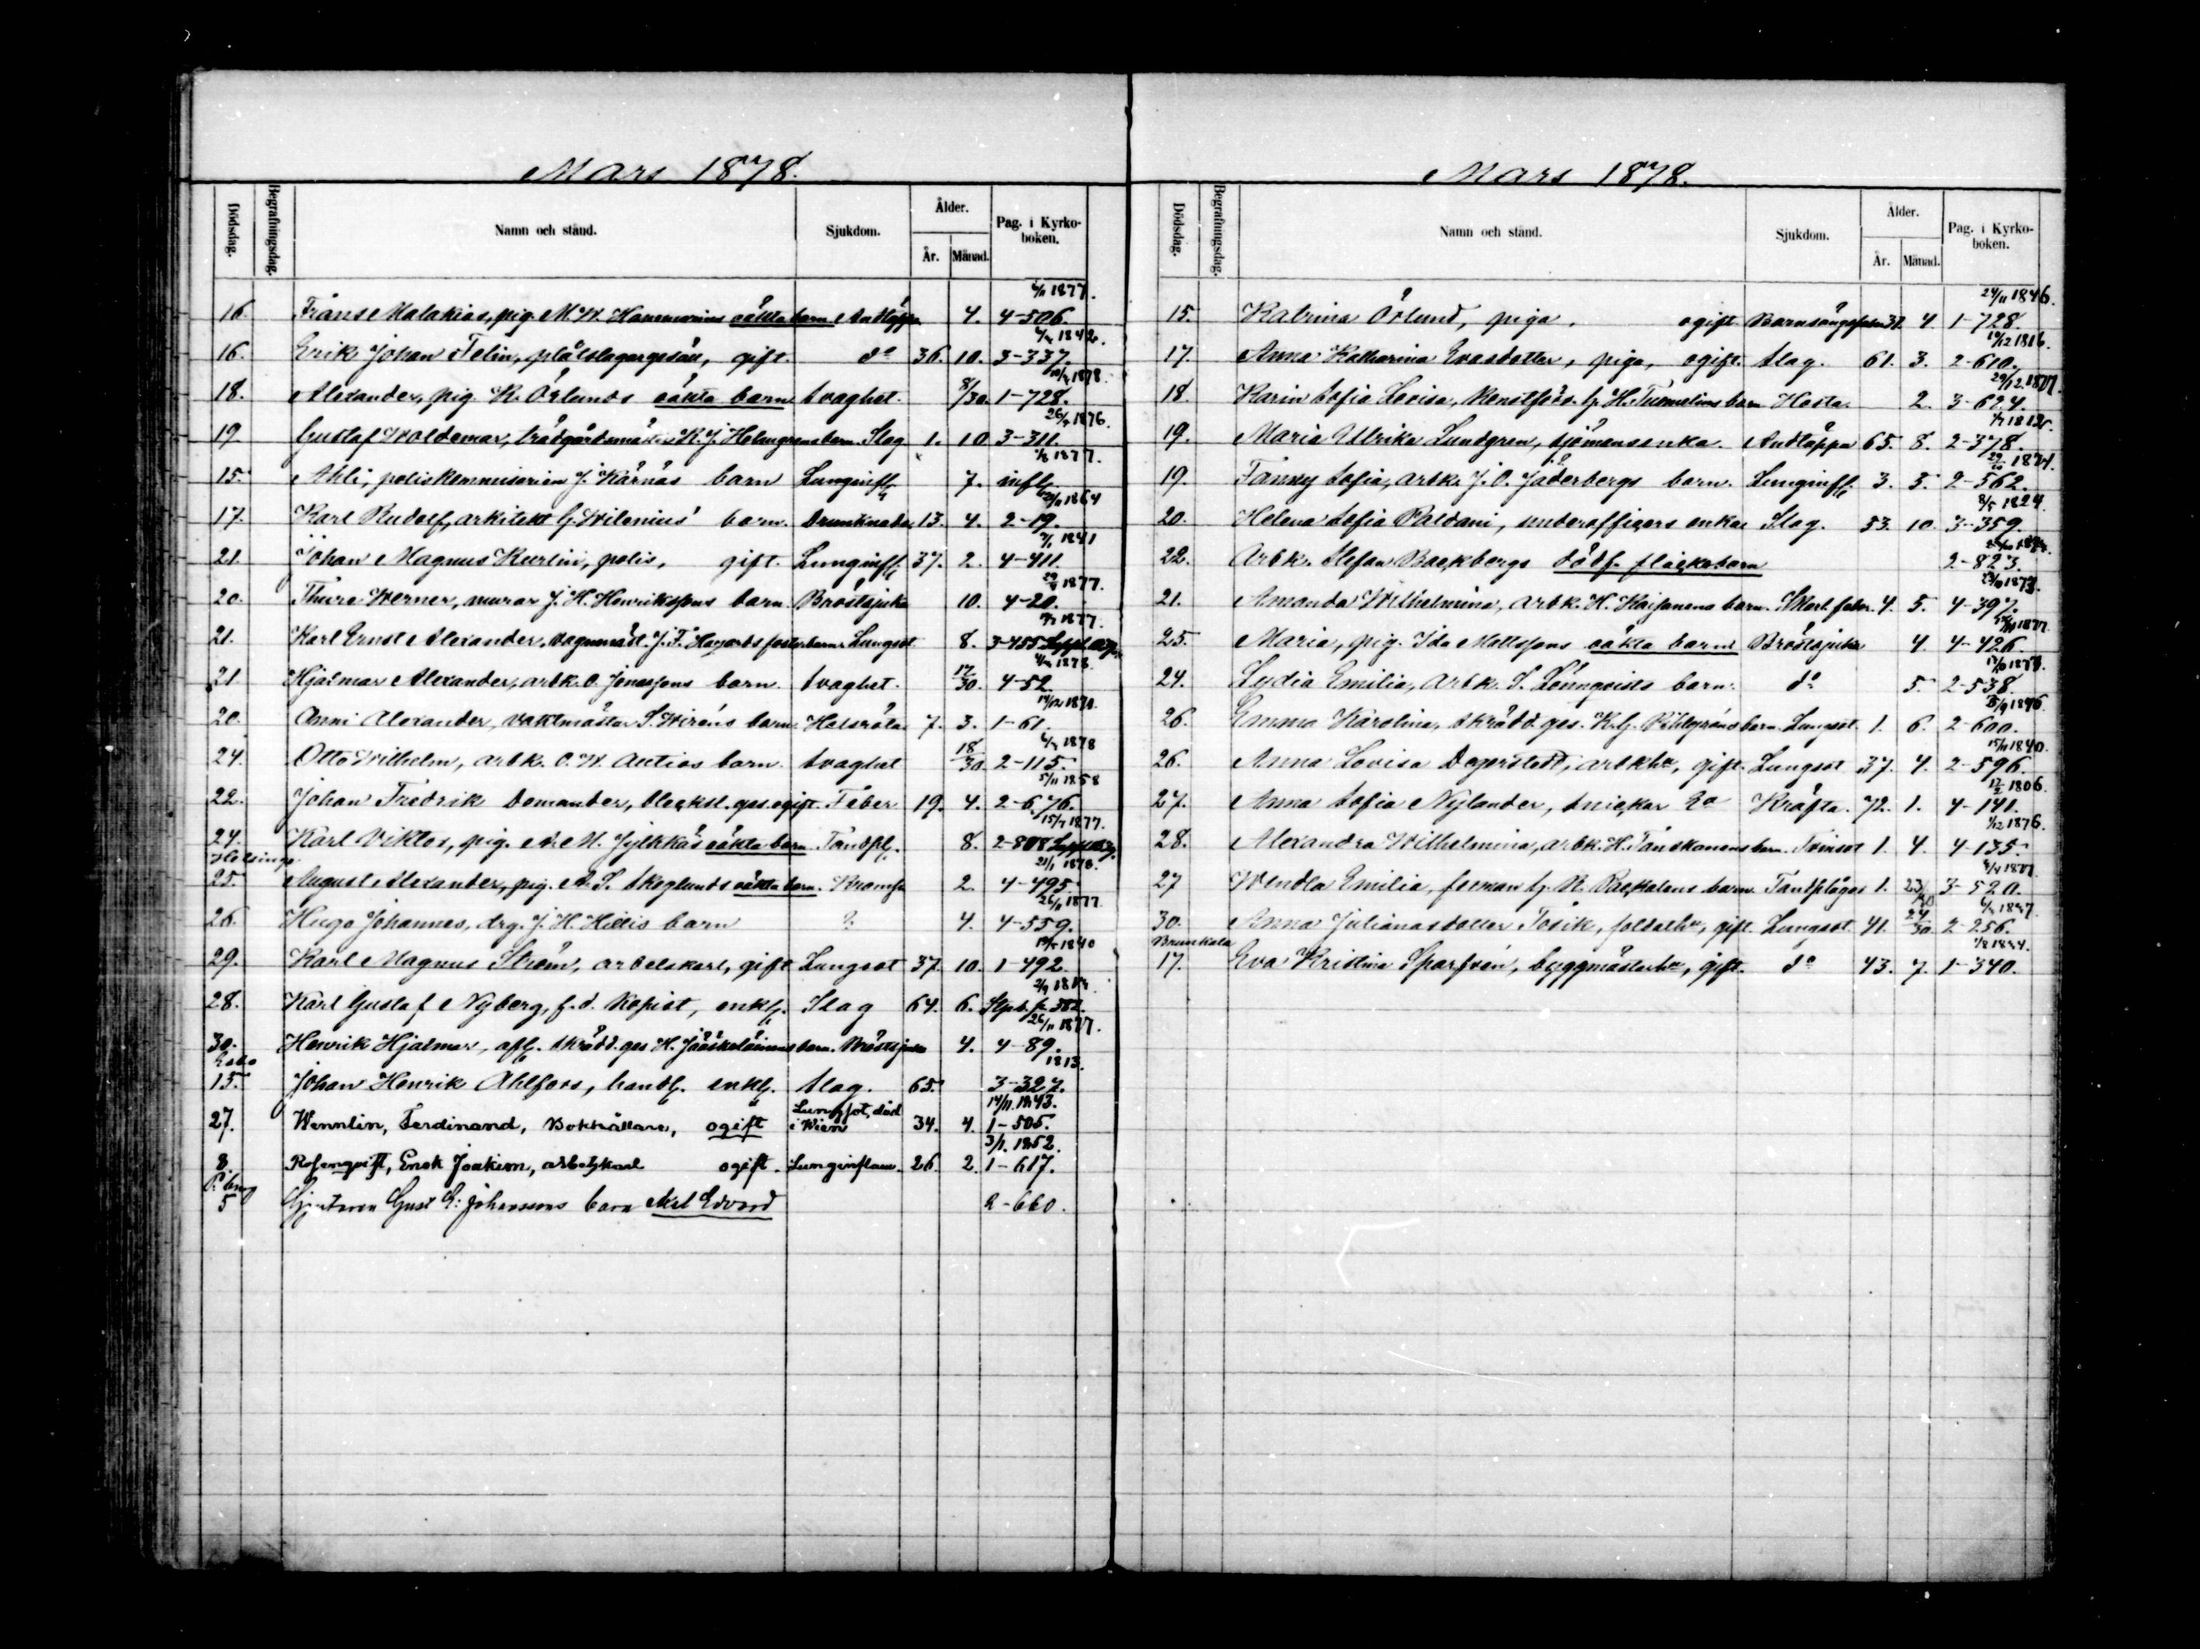 Mars 1878.
Dödsdag. Begrafningsdag. Namn och stånd. Sjukdom. Ålder. År. Månad. Pag. i Kyrkoboken.
1877.
16. Frans Malakias, pig. M. W. oäkta barn Andtäppa 4. 4-506.
1842.
16. Erik Johan Felin, plåtslagargesäll, gift. do 36. 10. 3-337.
1878.
18. Alexander, pig. K. Örlunds oäkta barn Svaghet. 8/30. 1-728.
26/4 1876.
19. Gustaf Woldemar, trädgårdsmästar K. J. Holmgrens barn. Slag 1. 10. 3-311.
1877.
15. Ahli, poliskommissarien J. Kärnäs barn Lunginfl. 7. infl.
1864
17. Karl Rudolf, arkitekt G. Wilenius' barn. Drunknade 13. 4. 2-19.
1841
21. Johan Magnus Kurlin, polis, gift. Lunginfl. 37. 2. 4-411.
1877.
20. Thure Werner, murar J. H. Henrikssons barn. Bröstsjuka 10. 4-20.
1877.
21. Karl Ernst Alexander, vagnmäst. J. F. fosterbarn Lungsot 8. 3-455
1878.
21. Hjalmar Alexander, arbk. O. Jonassons barn. Svaghet. 17/30. 4-52.
1870.
20. Anni Alexander, vaktmästar S. Wiréns barn. Halsröta 7. 3. 1-61.
1878
24. Otto Wilhelm, arbk. O. W. Antios barn. Svaghet 18/30. 2-115.
5/11 1858
22. Johan Fredrik Domander, blecksl. ges. ogift. Feber 19. 4. 2-6,76.
15/7 1877.
24. Karl Viktor, pig. M. Jylkkäs oäkta barn. Tandfl. 8. 2-808
Helsinge
21/1 1878.
25. August Alexander, pig. A. S. Skoglunds oäkta barn. Kramp 2. 4-495.
26/11 1877
26. Hugo Johannes, drg. J. H. Hillis barn ? 4. 4-559.
1840
29. Karl Magnus Ström, arbetskarl, gift Lungsot 37. 10. 1-492.
28. Karl Gustaf Nyberg, f.d. kopist, enkl. Slag 64. 6. 382.
26/11 1877.
30. Henrik Hjalmar, afl. skrädd. ges. H. Jääskeläinens barn. Bröstsjuka 4. 4-89.
Esbo
1813.
15. Johan Henrik Ahlfors, handl. enkl. Slag. 65. 3-327.
14/11. 1843.
27. Wennlin, Ferdinand, Bokhållare, ogift Lungsot, död i Wien 34. 4. 1-505.
3/1. 1852.
8. Rosenqvist, Enok Joakim, arbetskarl ogift. Lunginflam. 26. 2. 1-617.
5 Gjutaren Gust E: Johanssons barn Axel Edvard 2-660.
Mars 1878.
Dödsdag. Begrafningsdag. Namn och stånd. Sjukdom. Ålder. År. Månad. Pag. i Kyrkoboken.
24/11 1846.
15. Katrina Örlund, piga, ogift. Barnsängsfeber 31. 4. 1-728.
1816.
17. Anna Katharina Evasdotter, piga, ogift. Slag. 61. 3. 2-610.
29/12. 1877.
18. Karin Sofia Lovisa, Konstför. H. Tuomelins barn Hosta. 2. 3-624.
19. Maria Ulrika Lundgren, sjömansenka. Andtäppa 65. 8. 2-378.
1874.
19. Fanny Sofia, arbk. J. O. Jäderbergs barn. Lunginfl. 3. 5. 2-562.
8/5 1824
20. Helena Sofia Paldani, underofficers enka Slag. 53. 10. 3-359.
22. Arbk. Stefan Backbergs dödf. flickebarn 2-823.
1873.
21. Amanda Wilhelmina, arbk. H. Kaipanens barn. Skarl. feber. 4. 5. 4-397.
1877.
25. Maria, pig. Ida Mattssons oäkta barn Bröstsjuka 4. 4-426.
24. Lydia Emilia, Arbk. S. Lönnqvists barn. do 5. 2-538.
1876.
26. Emma Karolina, skrädd. ges. K. G. Pihlgréns barn. Lungsot. 1. 6. 2-600.
15/11 1840.
26. Anna Lovisa Dagerstedt, arbkhu, gift. Lungsot 37. 4. 2-596.
17/2 1806.
27. Anna Sofia Nylander, snickar Ea Kräfta. 72. 1. 4-141.
1/12 1876.
28. Alexandra Wilhelmina, arbk. H. Tanskanens barn. Tvinsot 1. 4. 4-135.
1877.
27 Wendla Emilia, forman G. R. barn. Tandplågor 1. 23/30 3-520.
30. Anna Julianasdotter Tosik, soldathu, gift. Lungsot. 41. 24/30. 2-256.
17. Eva Kristina Sparfvén, byggmästarhu, gift. do 43. 7. 1-340.